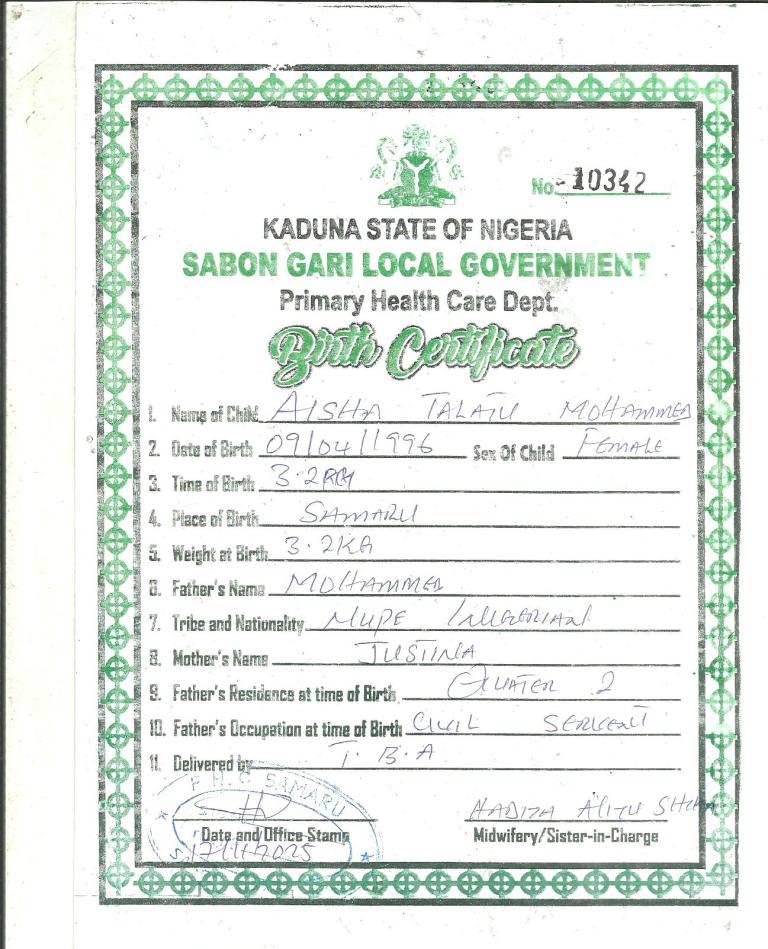 No:-10342
KADUNA STATE OF NIGERIA
SABON GARI LOCAL GOVERNMENT
Primary Health Care Dept.
Birth Certificate
1. Name of Child AISHA TALATU MOHAMMED
2. Date of Birth 09/04/1996 Sex Of Child FEMALE
3. Time of Birth 3.2KG
4. Place of Birth SAMARU
5. Weight at Birth 3.2KG
6. Father's Name MOHAMMED
7. Tribe and Nationality NUPE / NIGERIAN
8. Mother's Name JUSTINA
9. Father's Residence at time of Birth QUATER 2
10. Father's Occupation at time of Birth CIVIL SERVENT
11. Delivered by T.B.A
P.H.C SAMARU
HADIZA ALIYU
Date and Office Stamp Midwifery/Sister-in-Charge